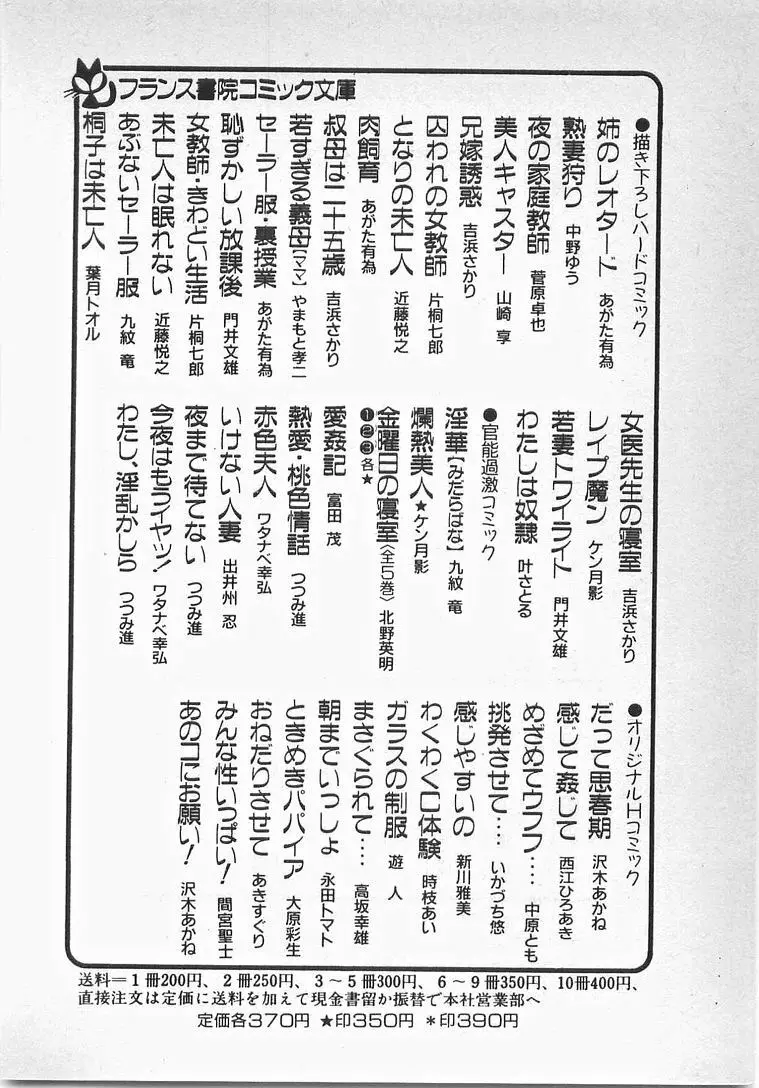 フランス書院コミック文庫
●描き下ろしハードコミック
姉のレオタード あがた有為
熟妻狩り 中野ゆう
夜の家庭教師 菅原卓也
美人キャスター 山崎 享
兄嫁誘惑 吉浜さかり
囚われの女教師 片桐七郎
となりの未亡人 近藤悦之
肉飼育 あがた有為
叔母は二十五歳 吉浜さかり
若すぎる義母【ママ】 やまもと孝二
セーラー服・裏授業 あがた有為
恥ずかしい放課後 門井文雄
女教師・きわどい生活 片桐七郎
未亡人は眠れない 近藤悦之
あぶないセーラー服 九紋 竜
桐子は未亡人 葉月トオル
女医先生の寝室 吉浜さかり
レイプ魔ン ケン月影
若妻トワイライト 門井文雄
わたしは奴隷 叶さとる
●官能過激コミック
淫華【みだらばな】 九紋 竜
爛熱美人★ケン月影
金曜日の寝室〈全5巻〉 北野英明
❶❷❸各★
愛姦記 富田 茂
熱愛・桃色情話 つつみ進
赤色夫人 ワタナベ幸弘
いけない人妻 出井州 忍
夜まで待てない つつみ進
今夜はもうイヤッ! ワタナベ幸弘
わたし、淫乱かしら つつみ進
●オリジナルHコミック
だって思春期 沢木あかね
感じて姦じて 西江ひろあき
めざめてウフフ‥‥ 中原とも
挑発させて‥‥ いかづち悠
感じやすいの 新川雅美
わくわく口体験 時枝あい
ガラスの制服 遊 人
まさぐられて‥‥ 高坂幸雄
朝までいっしょ 永田トマト
ときめきパパイア 大原彩生
おねだりさせて あきすぐり
みんな性いっぱい! 間宮聖士
あのコにお願い! 沢木あかね
送料=1冊200円、2冊250円、3〜5冊300円、6〜9冊350円、10冊400円、
直接注文は定価に送料を加えて現金書留か振替で本社営業部へ
定価各370円 ★印350円 *印390円